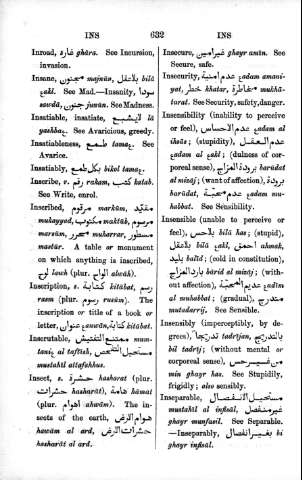 INS 632 INS
Inroad, غارة ghára. See Incursion,
invasion.
Insane, مجنون majnún, بلا عقل bilá
ȝaḳl. See Mad.—Insanity, سودا
sawdá, جنون junún. See Madness.
Insatiable, insatiate, لا يشبع lá
yashbaȝ. See Avaricious, greedy.
Insatiableness, طمع tamaȝ. See
Avarice.
Insatiably, بكل طمع bikol tamaȝ.
Inscribe, v. رقم raḳam, كتب katab.
See Write, enrol.
Inscribed, مرقوم marḳúm, مقيد
mukayyad, مكتوب maktúb, مرسوم
marsúm, محرر muharrar, مسطور
mastúr. A table or monument
on which anything is inscribed,
لوح louh (plur. الواح alwáh).
Inscription, s. كتابة kitábat, رسم
rasm (plur. رسوم rusúm). The
inscription or title of a book or
letter, عنوان ȝawán, كتابة kitábat.
Inscrutable, ممتنع التفتيش mum-
taniȝ al taftísh, مستحيل التفحص
mustahíl attafahhus.
Insect, s. حشرة hasharat (plur.
حشرات hasharát), هامة hámat
(plur. اهوام ahwám). The in-
sects of the earth, هوام الارض
hawám al ard, حشرات الارض
hasharát al ard.
Insecure, غير امين ghayr amín. See
Secure, safe.
Insecurity, عدم امنية ȝadam amani-
yat, خطر khatar, مخاطرة mukhá-
tarat. See Security, safety, danger.
Insensibility (inability to perceive
or feel), عدم الاحساس ȝadam al
ihsás; (stupidity), عدم العقل
ȝadam al ȝaḳl; (dulness of cor-
poreal sense), برودة المزاج barúdat
al mizáj; (want of affection), برودة
barúdat, عدم محبة ȝadam mu-
habbat. See Sensibility.
Insensible (unable to perceive or
feel), بلا حس bilá has; (stupid),
بلا عقل bilá ȝaḳl, احمق ahmaḳ,
بليد balíd; (cold in constitution),
بارد المزاج bárid al mizáj; (with-
out affection), عديم المحبة ȝadím
al muhabbat; (gradual), متدرج
mutadarrij. See Sensible.
Insensibly (imperceptibly, by de-
grees), تدريجا tadríjan, بالتدريج
bil tadríj; (without mental or
corporeal sense), من غير حس
min ghayr has. See Stupidity,
frigidly; also sensibly.
Inseparable, مستحيل الانفصال
mustahíl al infisál, غير منفصل
ghayr munfasil. See Separable.
—Inseparably, بغير انفصال bi
ghayr infisál.